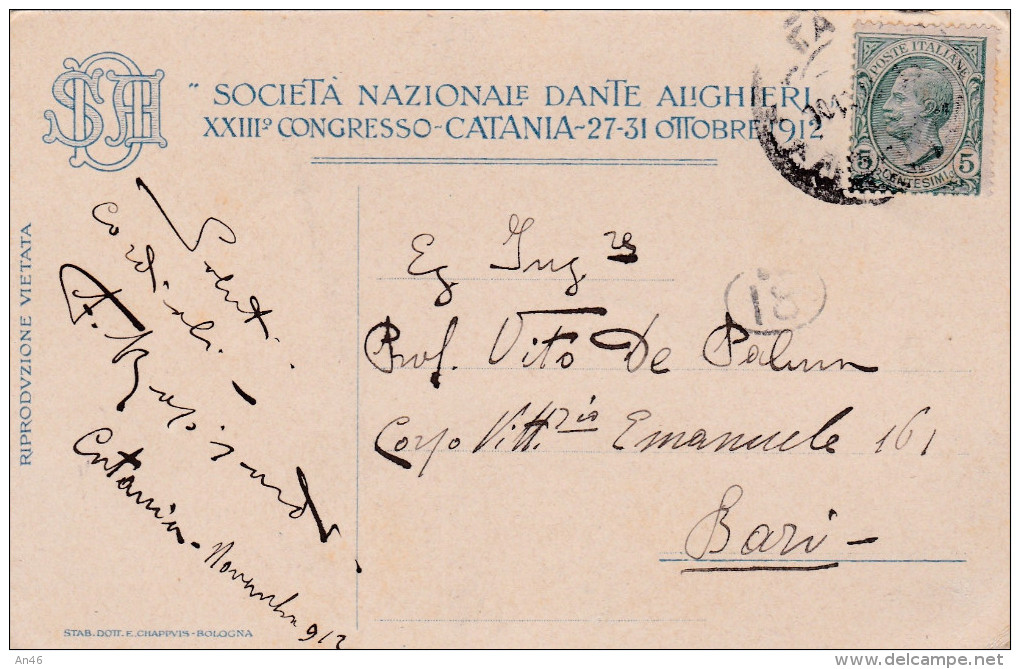 " SOCIETÀ NAZIONALE DANTE ALIGHIERI
XXIIIº CONGRESSO-CATANIA-27-31 OTTOBRE 1912
POSTE ITALIANE
5 CENTESIMI 5
RIPRODVZIONE VIETATA
Saluti
cordiali.
Catania - Novembre 912
Eg Ing re
18
Prof. Vito De Palma
Corso Vitt.rio Emanuele 161
Bari -
STAB. DOTT. E. CHAPPVIS - BOLOGNA
An46
delcampe.net